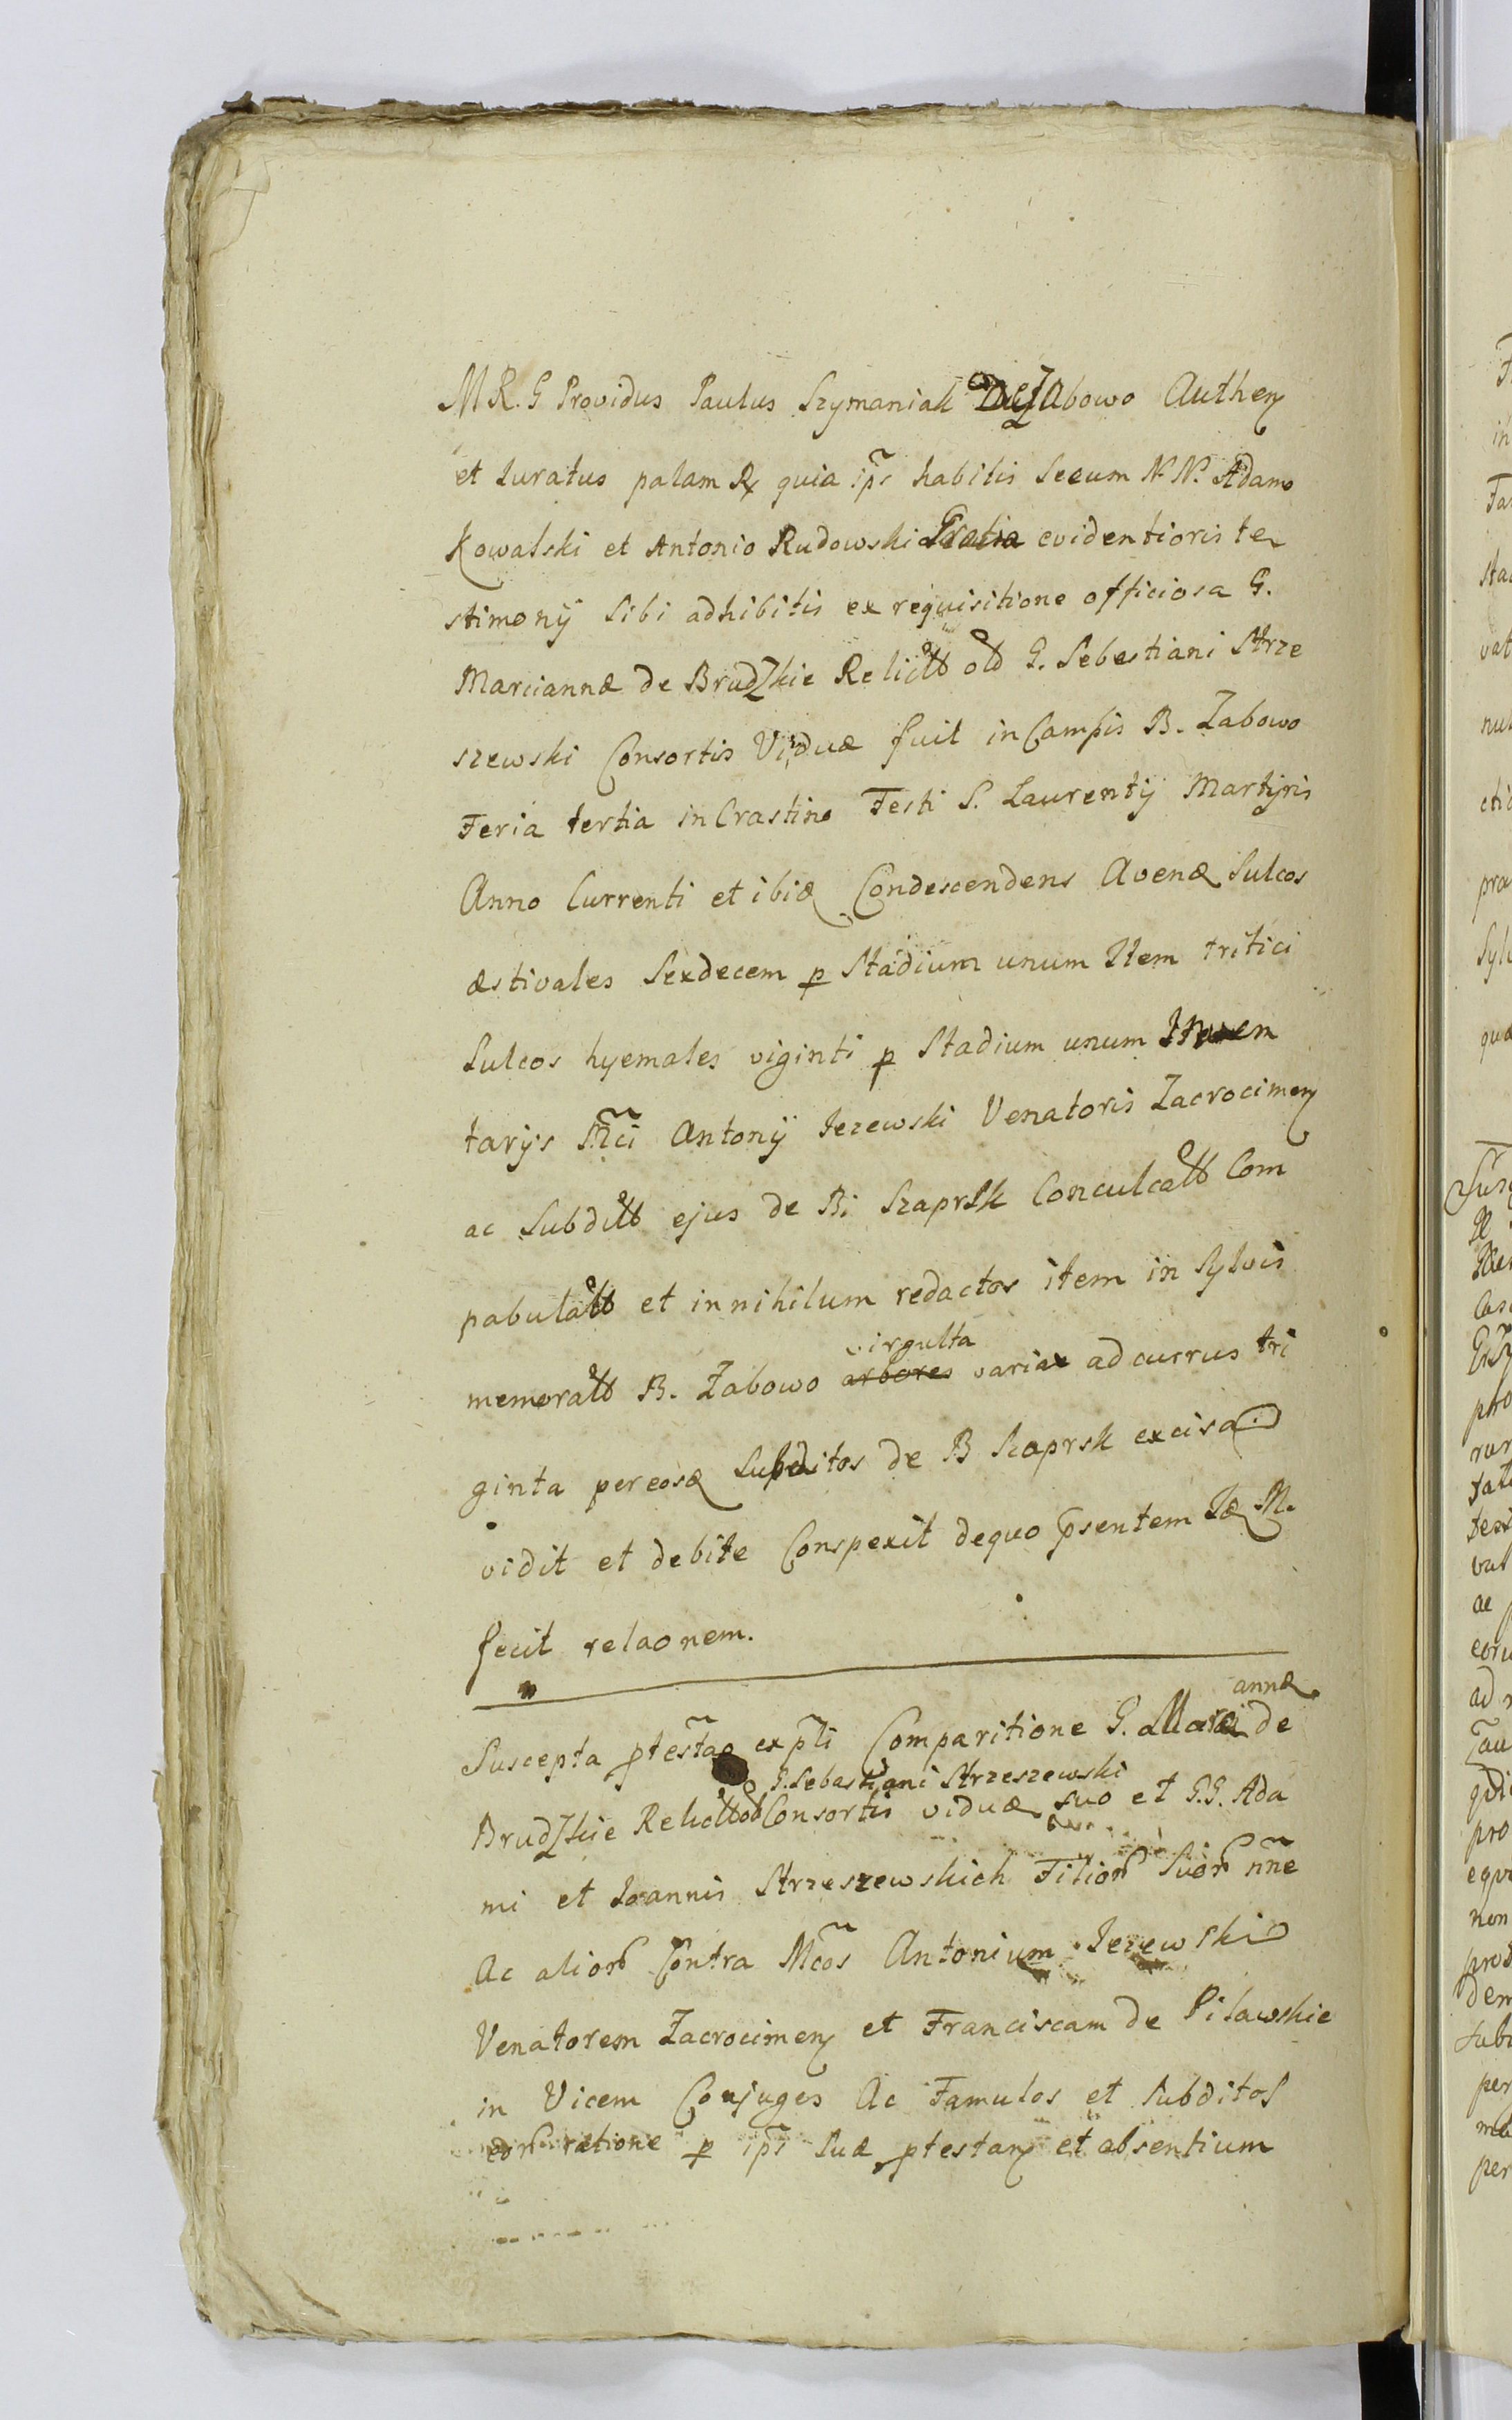 M R. G Providus Paulus Szymaniak De Zabowo Authen
et Juratus palam R quia ips habitis Secum N. N. Adamo
Kowalski et Antonio Rudowski Gratia evidentioris te
stimonÿ Sibi adhibitis ex requisitione officiosa G.
Mariannæ de Brudzkie Relictt ott G. Sebestiani Strze
szewski Consortis Viduæ fuit in Campis B. Zabowo
Feria tertia in Crastino Festi S. Laurentÿ Martÿris
Anno Currenti et ibiq Condescendens Avenæ Sulcos
æstivales Sexdecem p Stadium unum Item tritici
Sulcos hyemales viginti p Stadium unum
tarÿs Mci Antonÿ Jezewski Venatoris Zacrocimen
ac Subditt ejus de B. Szaprsk Conculcatt Com
pabulatt et in nihilum redactos item in Sylvis
memoratt B. Zabowo virgulta varia ad currus tri
ginta per eosq Subditos de B Szaprsk excisa
vidit et debite Conspexit de quo psentem Jq. R.
fecit relaonem.
Suscepta ptestao expti Comparitione G. Mariannæ de
Brudzkie Relictt ott G. Sebastiani Strzeszewski Consortis viduæ suo et G.G. Ada
mi et Joannis Strzeszewskich Filior Suor nne
Ac alior Contra Mcos Antonium Jezewski
Venatorem Zacrocimen et Franciscam de Pilawskie
in Vicem Conjuges Ac Famulos et Subditos
eor ratione p ips Suæ ptestan et absentium